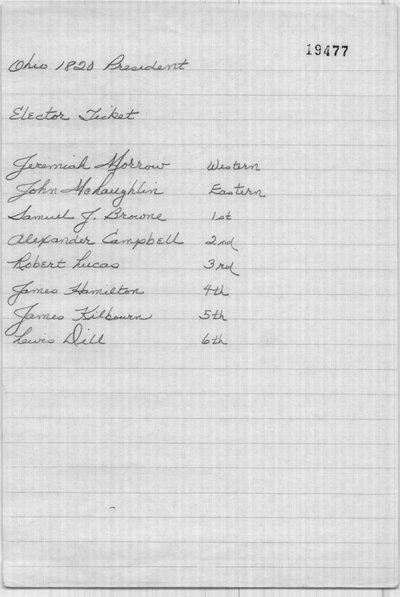 19477
Ohio 1820 President
Elector Ticket
Jeremiah Morrow Western
John McLaughlin Eastern
Samuel J. Browne 1st
Alexander Campbell 2nd
Robert Lucas 3rd
James Hamilton 4th
James Kilbourn 5th
Lewis Dill 6th